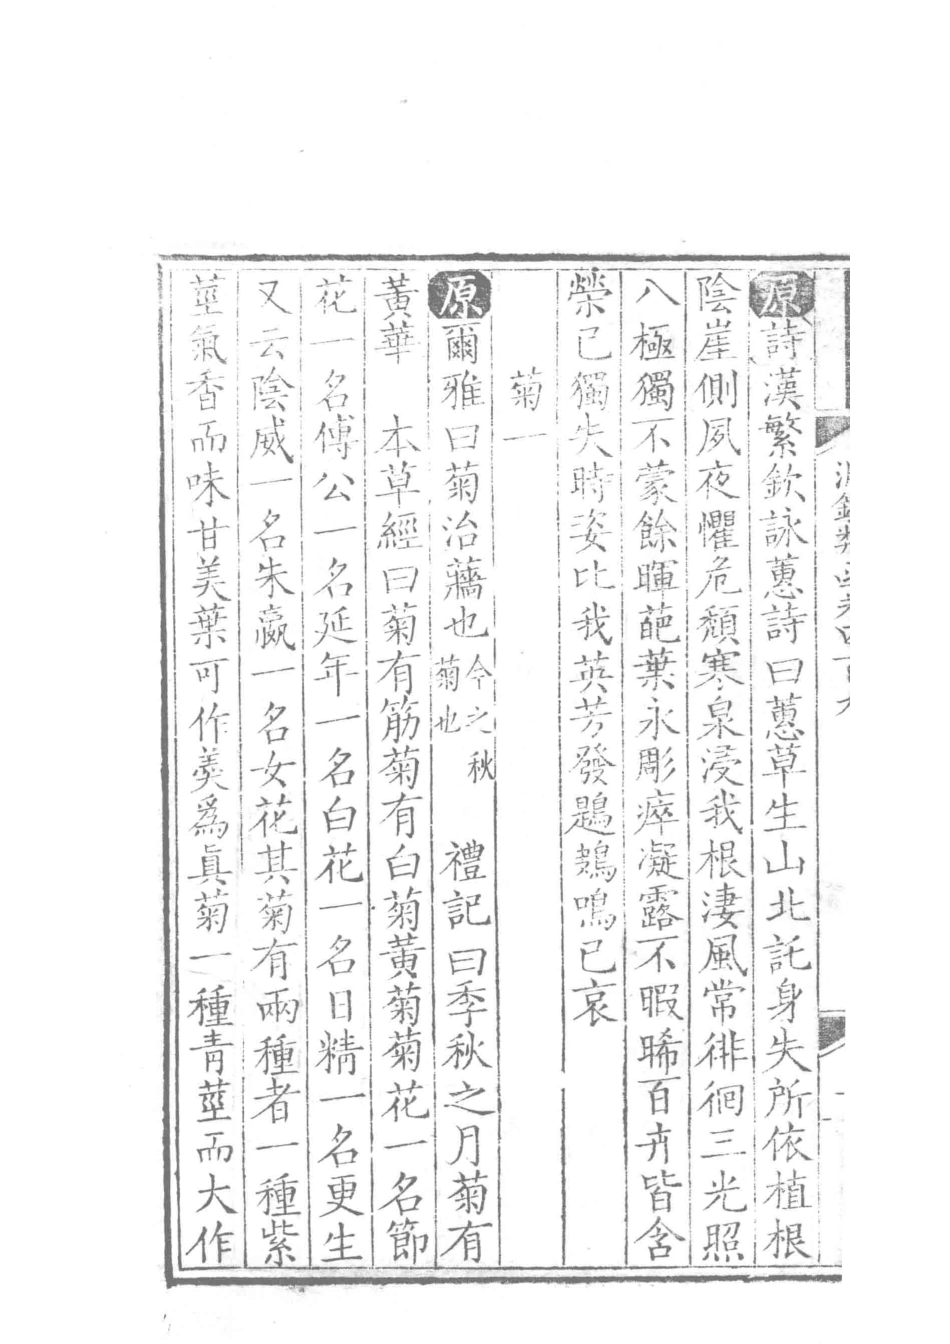 原詩漢繁欽詠蕙詩曰蕙草生山北託身失所依植根
陰崖側夙夜懼危頹寒泉浸我根淒風常徘徊三光照
八極獨不蒙餘暉葩葉永彫瘁凝露不暇晞百卉皆含
榮已獨失時姿比我英芳發鶗鴂鳴已哀
菊一
原爾雅曰菊治蘠也今之秋菊也 禮記曰季秋之月菊有
黃華 本草經曰菊有筋菊有白菊黃菊菊花一名節
花一名傅公一名延年一名白花一名日精一名更生
又云陰威一名朱嬴一名女花其菊有兩種者一種紫
莖氣香而味甘美葉可作羹為真菊一種青莖而大作